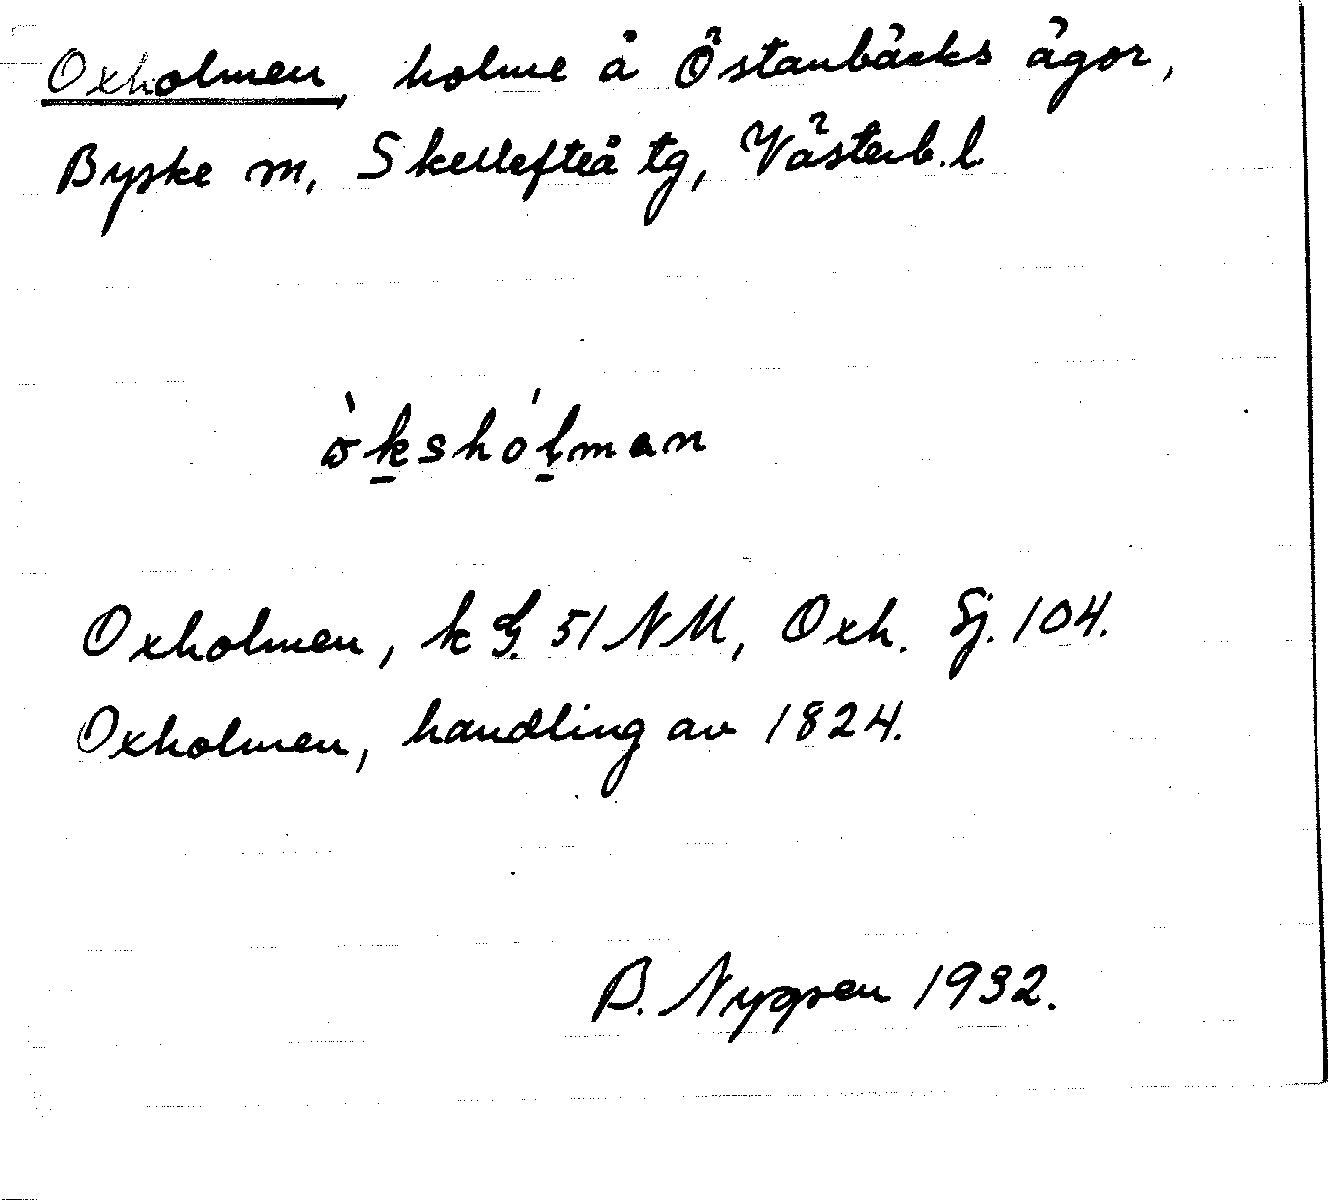 Oxholmen, holme å Östanbäcks ägor,
Byske sn, Skellefteå tg, Västerb. l.
òkshólman
Oxholmen, k G. 51 NM, Oxh. Sj. 104.
Oxholmen, handling av 1824.
B. 1932.